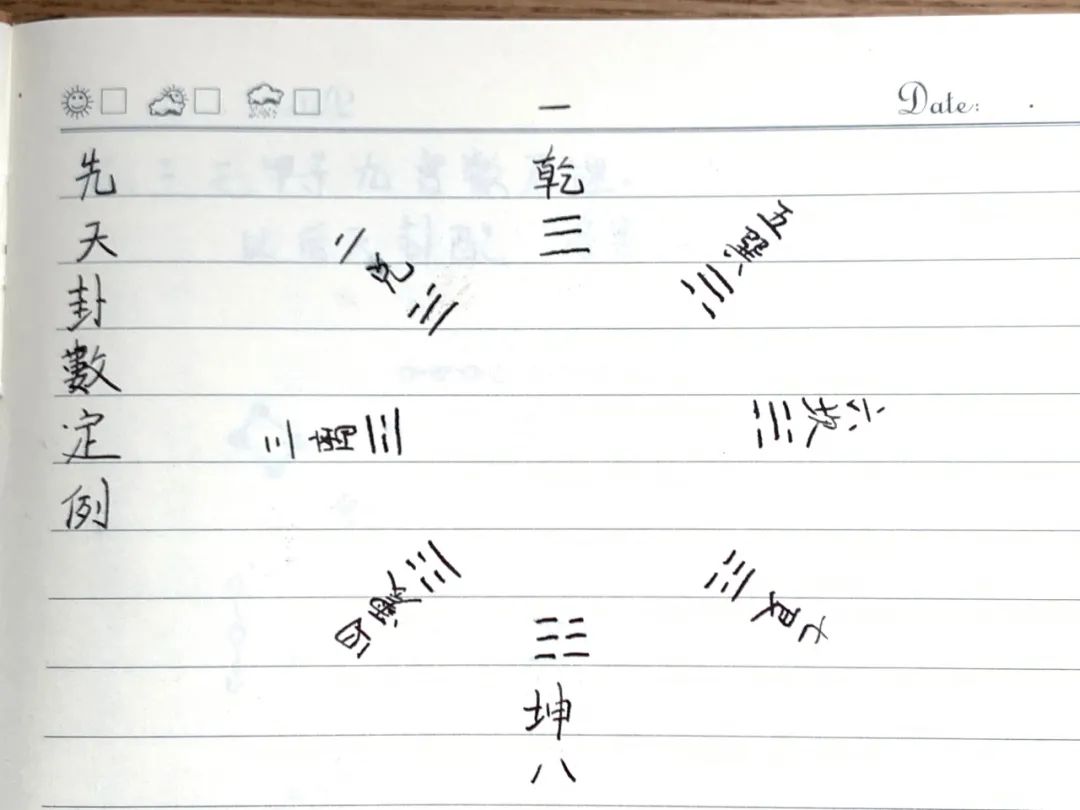 Date:
先天封數定例
一乾
二兌
三離
四震
五巽
六坎
七艮
坤八